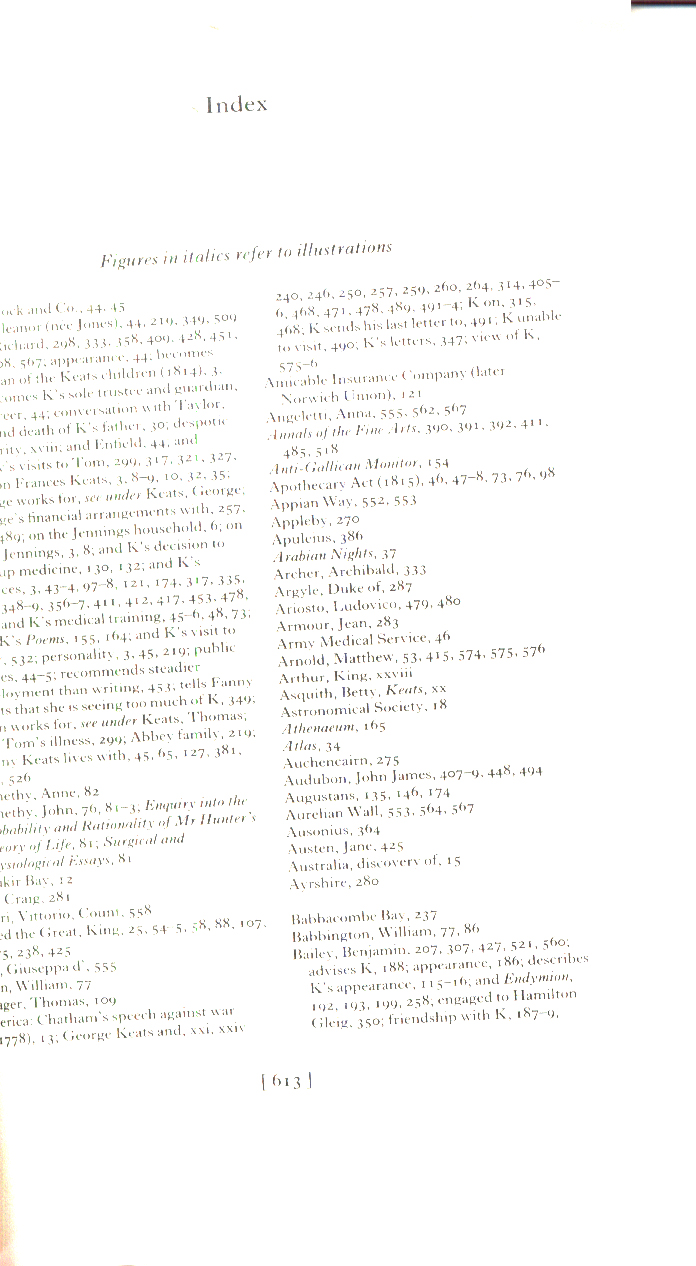 Index
Figures in italics refer to illustrations
ock and Co., 44, 45
leanor (née Jones), 44, 219, 349, 509
ichard, 298, 333, 358, 409, 428, 451,
8, 567; appearance, 44; becomes
an of the Keats children (1814), 3,
comes K's sole trustee and guardian,
eer, 44; conversation with Taylor,
nd death of K's father, 30; despotic
rity, xviii; and Enfield, 44, and
's visits to Tom, 299, 317, 321, 327,
on Frances Keats, 3, 8–9, 10, 32, 35;
ge works for, see under Keats, George;
ge's financial arrangements with, 257,
489; on the Jennings household, 6; on
Jennings, 3, 8; and K's decision to
up medicine, 130, 132; and K's
ces, 3, 43–4, 97–8, 121, 174, 317, 335,
348–9, 356–7, 411, 412, 417, 453, 478,
and K's medical training, 45–6, 48, 73;
K's Poems, 155, 164; and K's visit to
, 532; personality, 3, 45, 219; public
es, 44–5; recommends steadier
loyment than writing, 453; tells Fanny
ts that she is seeing too much of K, 349;
n works for, see under Keats, Thomas;
Tom's illness, 299; Abbey family, 219;
ny Keats lives with, 45, 65, 127, 381,
, 526
nethy, Anne, 82
nethy, John, 76, 81–3; Enquiry into the
obability and Rationality of Mr Hunter's
eory of Life, 81; Surgical and
ysiological Essays, 81
kir Bay, 12
Craig, 281
ri, Vittorio, Count, 558
ed the Great, King, 25, 54–5, 58, 88, 107,
5, 238, 425
, Giuseppa d', 555
n, William, 77
ager, Thomas, 109
erica: Chatham's speech against war
1778), 13; George Keats and, xxi, xxiv
240, 246, 250, 257, 259, 260, 264, 314, 405–
6, 468, 471, 478, 489, 491–4; K on, 315,
468; K sends his last letter to, 491; K unable
to visit, 490; K's letters, 347; view of K,
575–6
Amicable Insurance Company (later
Norwich Union), 121
Angeletti, Anna, 555, 562, 567
Annals of the Fine Arts, 390, 391, 392, 411,
485, 518
Anti-Gallican Monitor, 154
Apothecary Act (1815), 46, 47–8, 73, 76, 98
Appian Way, 552, 553
Appleby, 270
Apuleius, 386
Arabian Nights, 37
Archer, Archibald, 333
Argyle, Duke of, 287
Ariosto, Ludovico, 479, 480
Armour, Jean, 283
Army Medical Service, 46
Arnold, Matthew, 53, 415, 574, 575, 576
Arthur, King, xxviii
Asquith, Betty, Keats, xx
Astronomical Society, 18
Athenaeum, 165
Atlas, 34
Auchencairn, 275
Audubon, John James, 407–9, 448, 494
Augustans, 135, 146, 174
Aurelian Wall, 553, 564, 567
Ausonius, 364
Austen, Jane, 425
Australia, discovery of, 15
Ayrshire, 280
Babbacombe Bay, 237
Babbington, William, 77, 86
Bailey, Benjamin, 207, 307, 427, 521, 560;
advises K, 188; appearance, 186; describes
K's appearance, 115–16; and Endymion,
192, 193, 199, 258, engaged to Hamilton
Gleig, 350; friendship with K, 187–9,
[ 613 ]